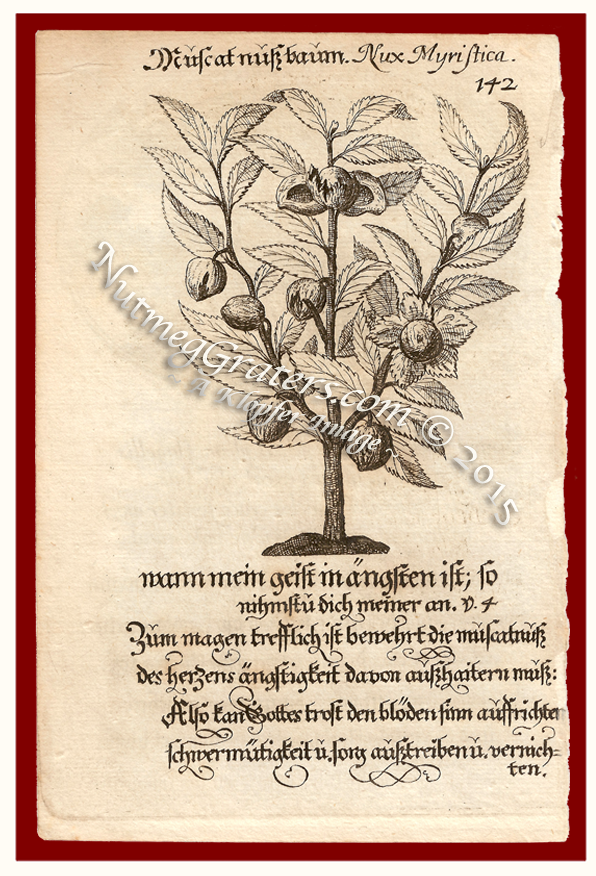 Muscat nußbaum. Nux Myristica.
142
NutmegGraters.com © 2015
~ A Klopfer Image ~
wann mein geist in ängsten ist; so
nihmstu dich meiner an. v. 4
Zum magen trefflich ist bewehrt die muscatnuß
des herzens ängstigkeit davon außhaitern muß:
Also kan Gottes trost den blöden sinn auffrichten
schwermütigkeit u. sorg außtreiben u. vernich-
ten.